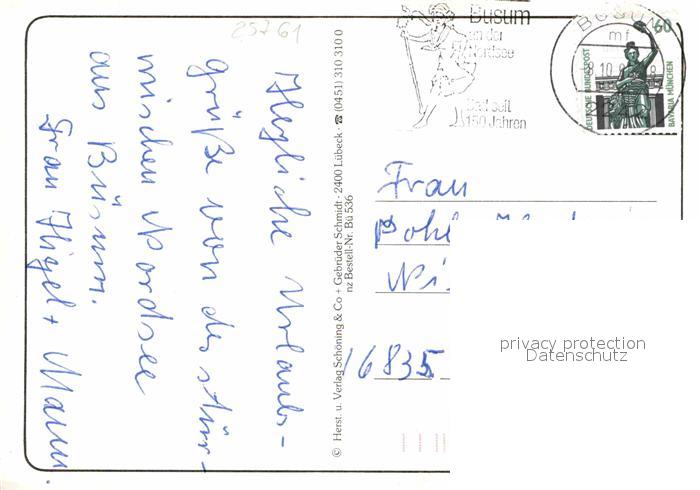 25761
Herzliche Urlaubs-
grüße von der stür-
mischen Nordsee
aus Büsum.
Frau Higel + Mann.
© Herst. u. Verlag Schöning & Co + Gebrüder Schmidt · 2400 Lübeck · ☎ (0451) 310 310 0
nz Bestell-Nr. Bü 536
Büsum
an der
Nordsee
Bad seit
150 Jahren
BÜSUM
mf
60
DEUTSCHE BUNDESPOST
BAVARIA MÜNCHEN
Frau
16835
privacy protection
Datenschutz